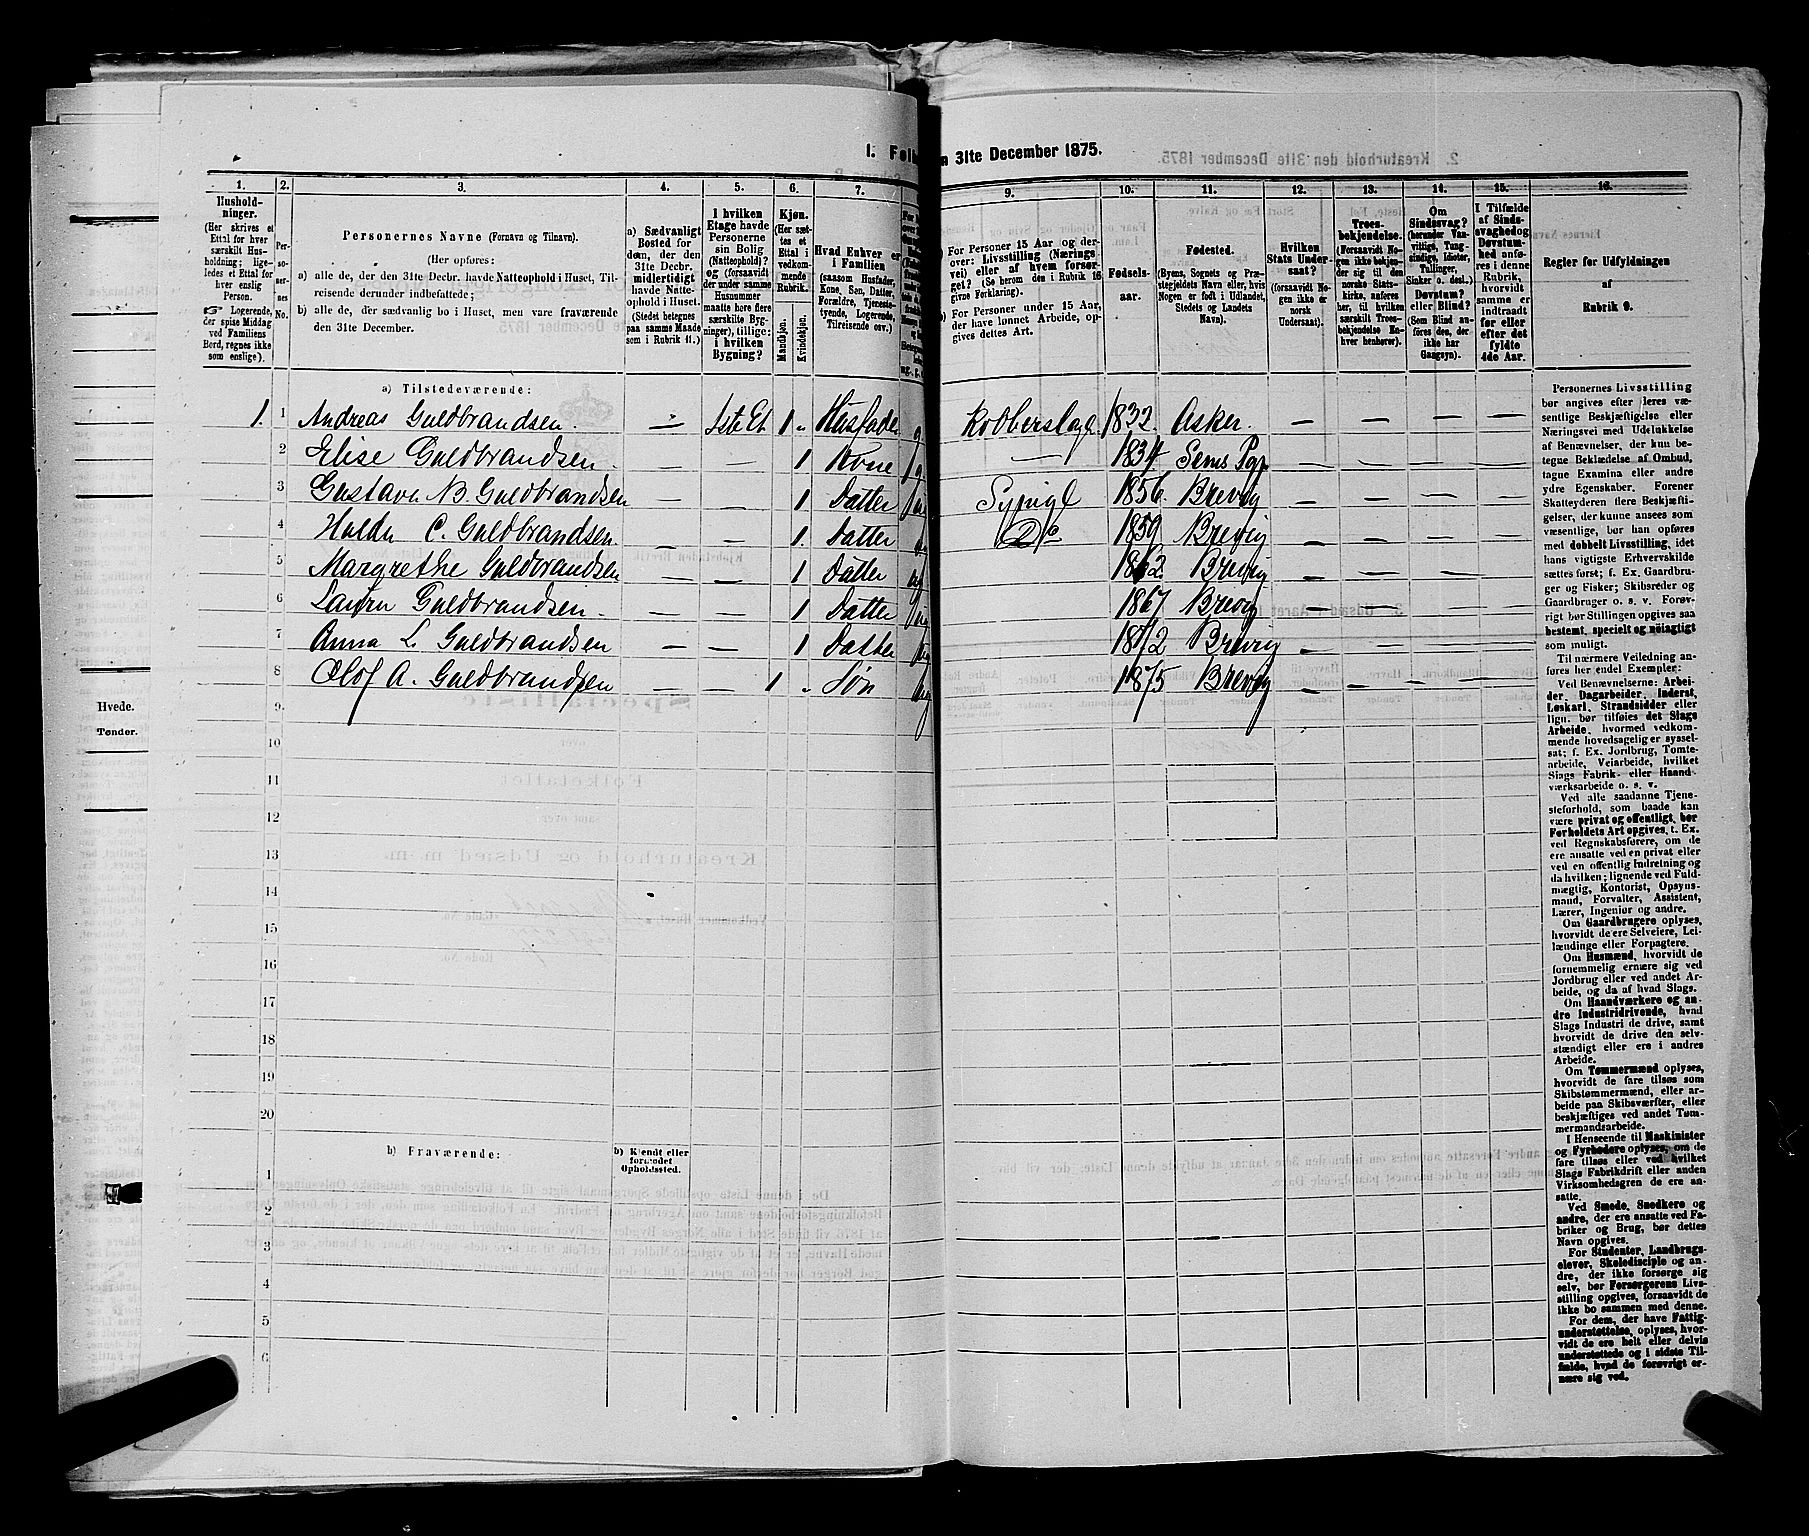 1. Folk
n 31te December 1875.
1.
2.
3.
4.
5.
6.
7.
9.
10.
11.
12.
13.
14.
15.
16.
Hushold-
ninger.
(Her skrives et
Ettal for hver
særskilt Hus-
holdning; lige-
ledes et Ettal for
hver enslig
Person.
☞ Logerende,
der spise Middag
ved Familiens
Bord, regnes ikke
som enslige).
Per-
so-
ner-
nes
No.
Personernes Navne (Fornavn og Tilnavn).
(Her opføres:
a) alle de, der den 31te Decbr. havde Natteophold i Huset, Til-
reisende derunder indbefattede;
b) alle de, der sædvanlig bo i Huset, men vare fraværende
den 31te December.
a) Sædvanligt
Bosted for
dem, der den
31te Decbr.
midlertidigt
havde Natte-
ophold i Huset.
(Stedet betegnes
paa samme Maade
som i Rubrik 11.)
I hvilken
Etage havde
Personerne
sin Bolig
(Natteophold)?
og (forsaavidt
der under samme
Husnummer
maatte høre flere
særskilte Byg-
ninger), tillige:
i hvilken
Bygning?
Kjøn.
(Her sæt-
tes et
Ettal i
vedkom-
mende
Rubrik.
Mandkjøn.
Kvindekjøn.
Hvad Enhver er
i Familien
(saasom Husfader,
Kone, Søn, Datter,
Forældre, Tjeneste-
tyende, Logerende,
Tilreisende osv.)
For Personer 15 Aar og der-
over: Livsstilling (Nærings-
vei) eller af hvem forsør-
get? (Se herom den i Rubrik 16
givne Forklaring).
For Personer under 15 Aar,
der have lønnet Arbeide, op-
gives dettes Art.
Fødsels-
aar.
Fødested.
(Byens, Sognets og Præ-
stegjeldets Navn eller, hvis
Nogen er født i Udlandet,
Stedets og Landets
Navn).
Hvilken
Stats Under-
saat?
(forsaavidt
Nogen ikke er
norsk
Undersaat).
Troes-
bekjendelse.
(Forsaavidt No-
gen ikke bekjen-
der sig til den
norske Stats-
kirke, anføres
her, til hvilken
særskilt Troes-
bekjendelse En-
hver henhører).
Om
Sindssvag?
(herunder Van-
vittige, Tung-
sindige, Idioter,
Tullinger,
Sinker o. desl.).
Døvstum?
eller Blind?
(Som Blind an-
føres den, der-
ikke har
Gangsyn).
I Tilfælde
af Sinds-
svaghed og
Døvstum-
hed anfø-
res i denne
Rubrik,
hvorvidt
samme er
indtraadt
før eller
efter det
fyldte
4de Aar.
Regler for Udfyldningen
af
Rubrik 9.
a) Tilstedeværende:
1. 1 Andreas Guldbrandsen. 1ste Et 1 Husfader g Kobberslag. 1832. Asker.
2 Elise Guldbrandsen 1 Kone g 1834 Sems Pgr
3 Gustava B. Guldbrandsen 1 Datter ug Sypige 1856. Brevig
4 Hulda C. Guldbrandsen 1. Datter ug Do 1859 Brevig
5 Margrethe Guldbrandsen 1 Datter ug 1862. Brevig
6 Laura Guldbrandsen 1 Datter ug 1867 Brevig
7 Anna L. Guldbrandsen 1 Datter ug 1872 Brevig
8 Olof A. Guldbrandsen 1 Søn ug 1875 Brevig
9.
10
11
12
13
14
15
16
17
18
19
20
b) Fraværende:
b) Kjendt eller
formodet
Opholdssted.
1
2
3
4
5
6
Hvede.
Tønder.
Personernes Livsstilling
bør angives efter deres væ-
sentlige Beskjæftigelse eller
Næringsvei med Udelukkelse
af Benævnelser, der kun be-
tegne Beklædelse af Ombud,
tagne Examina eller andre
ydre Egenskaber. Forener
Skatteyderen flere Beskjæfti-
gelser, der kunne ansees som
væsentlige, bør han opføres
med dobbelt Livsstilling, idet
hans vigtigste Erhvervskilde
sættes først; f. Ex. Gaardbru-
ger og Fisker; Skibsreder og
Gaardbruger o. s. v. Forøv-
rigt bør Stillingen opgives saa
bestemt, specielt og nøiagtigt
som muligt.
Til nærmere Veiledning an-
føres her endel Exempler:
Ved Benævnelserne: Arbei-
der, Dagarbeider, Inderst,
Løskarl, Strandsidder eller
lign. bør tilføies det Slags
Arbeide, hvormed vedkom-
mende hovedsagelig er syssel-
sat; f. Ex. Jordbrug, Tomte-
arbeide, Veiarbeide, hvilket
Slags Fabrik- eller Haand-
værksarbeide o. s. v.
Ved alle saadanne Tjene-
steforhold, som baade kan
være privat og offentligt, bør
Forholdets Art opgives, t. Ex.
ved Regnskabsførere, om de
ere ansatte ved en privat eller
ved en offentlig Indretning og
da hvilken; lignende ved Fuld-
mægtig, Kontorist, Opsyns-
mand, Forvalter, Assistent,
Lærer, Ingeniør og andre.
Om Gaardbrugere oplyses,
hvorvidt de ere Selveiere, Lei-
lændinge eller Forpagtere.
Om Husmænd, hvorvidt de
fornemmelig ernære sig ved
Jordbrug eller ved andet Ar-
beide, og da af hvad Slags.
Om Haandværkere og an-
dre Industridrivende, hvad
Slags Industri de drive, samt
hvorvidt de drive den selv-
stændigt eller ere i andres
Arbeide.
Om Tømmermænd oplyses,
hvorvidt de fare tilsøs som
Skibstømmermænd, eller ar-
beide paa Skibsværfter, eller
beskjæftiges ved andet Tøm-
mermandsarbeide.
I Henseende til Maskinister
og Fyrbødere oplyses, om de
fare tilsøs eller ved hvilket
Slags Fabrikdrift eller anden
Virksomhedsgren de ere an-
satte.
Ved Smede, Snedkere og
andre, der ere ansatte ved Fa-
briker og Brug, bør dettes
Navn opgives.
For Studenter, Landbrugs-
elever, Skoledisciple og an-
dre, der ikke forsørge sig
selv, bør Forsørgerens Livs-
stilling opgives, forsaavidt de
ikke bo sammen med denne.
For dem, der have Fattig-
understøttelse, oplyses, hvor-
vidt de ere helt eller delvis
understøttede og i sidste Til-
fælde, hvad de forøvrigt er-
nære sig ved.